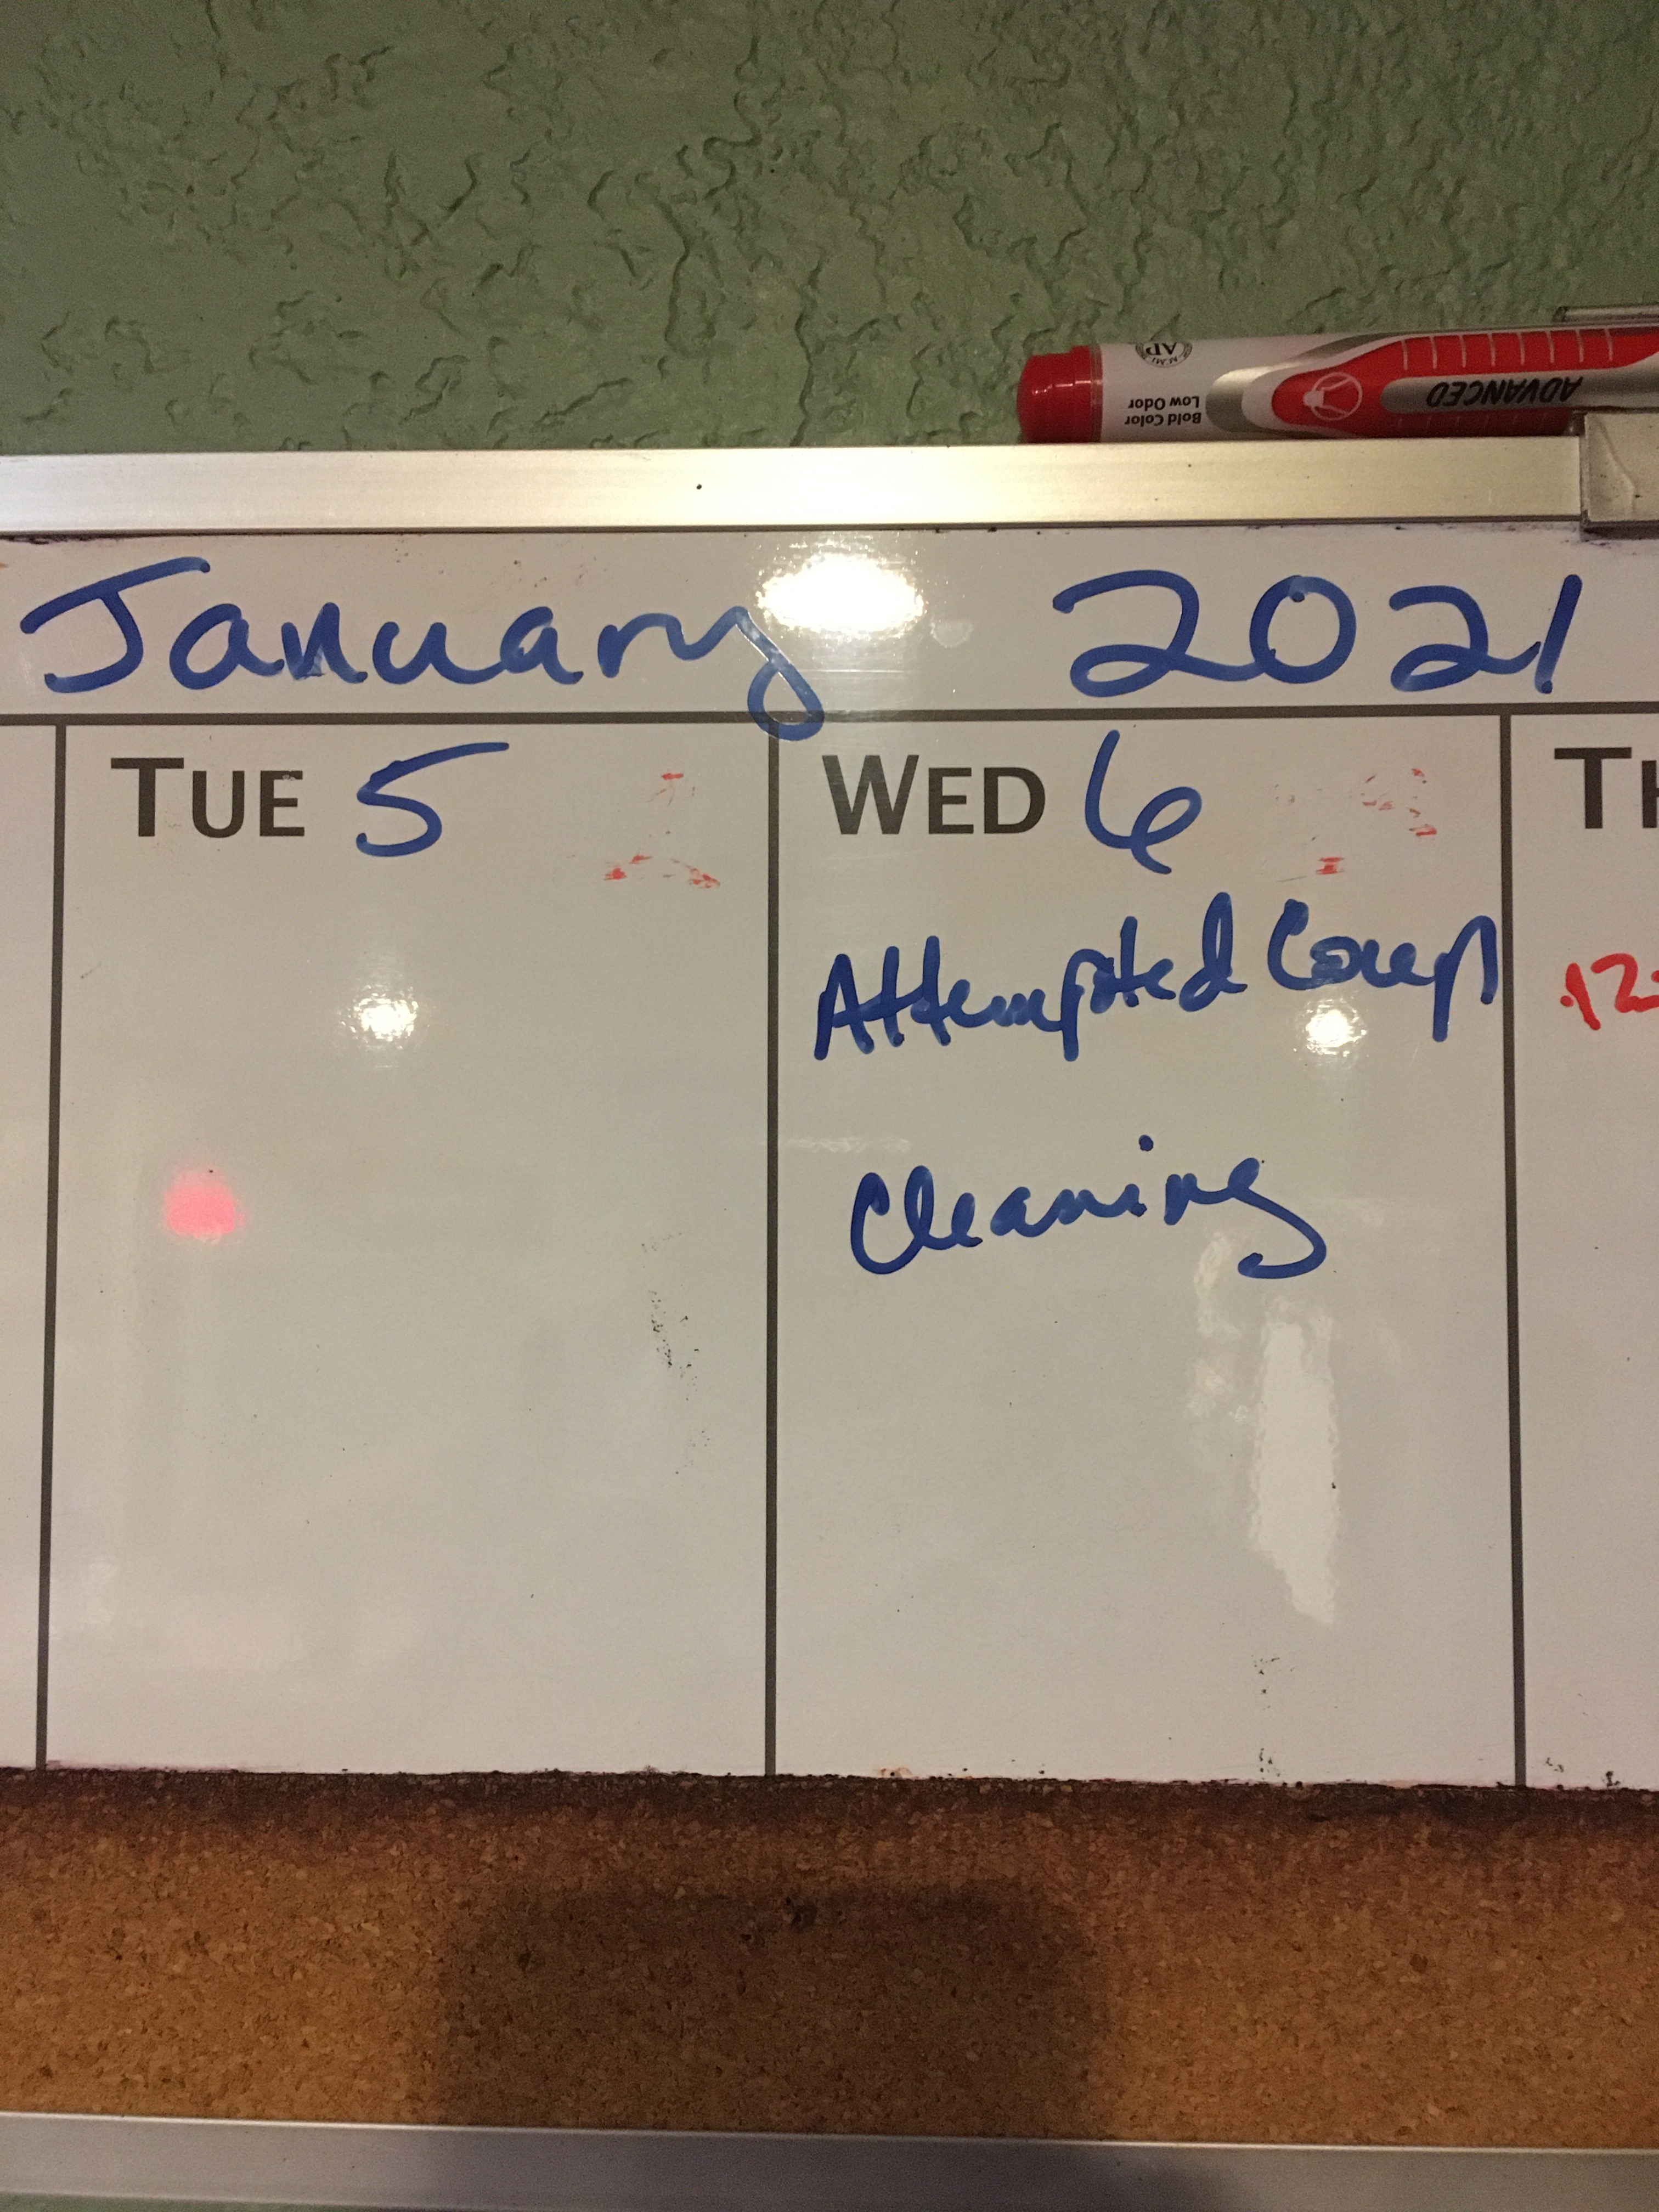 AP
Bold Color
Low Odor
ADVANCED
January 2021
TUE 5
WED 6
TH
Attempted Coup
12
Cleaning